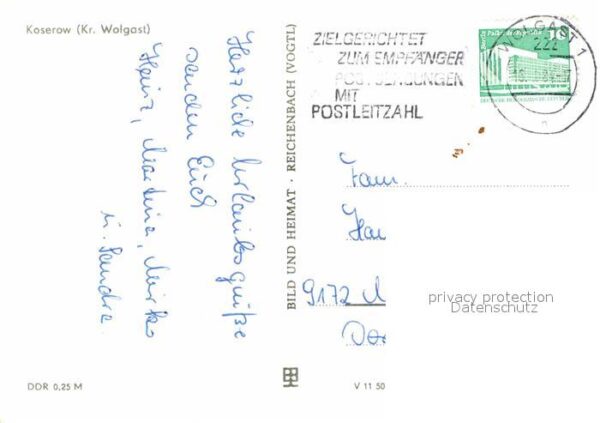 Koserow (Kr. Wolgast)
Herzliche Urlaubsgrüße
senden Euch
Heinz, Martina, Mirko
u. Sandra
DDR 0,25 M
BILD UND HEIMAT · REICHENBACH (VOGTL)
V 11 50
ZIELGERICHTET
ZUM EMPFÄNGER
POSTSENDUNGEN
MIT
POSTLEITZAHL
WOLGAST 1
222
10
Fam.
9172
privacy protection
Datenschutz